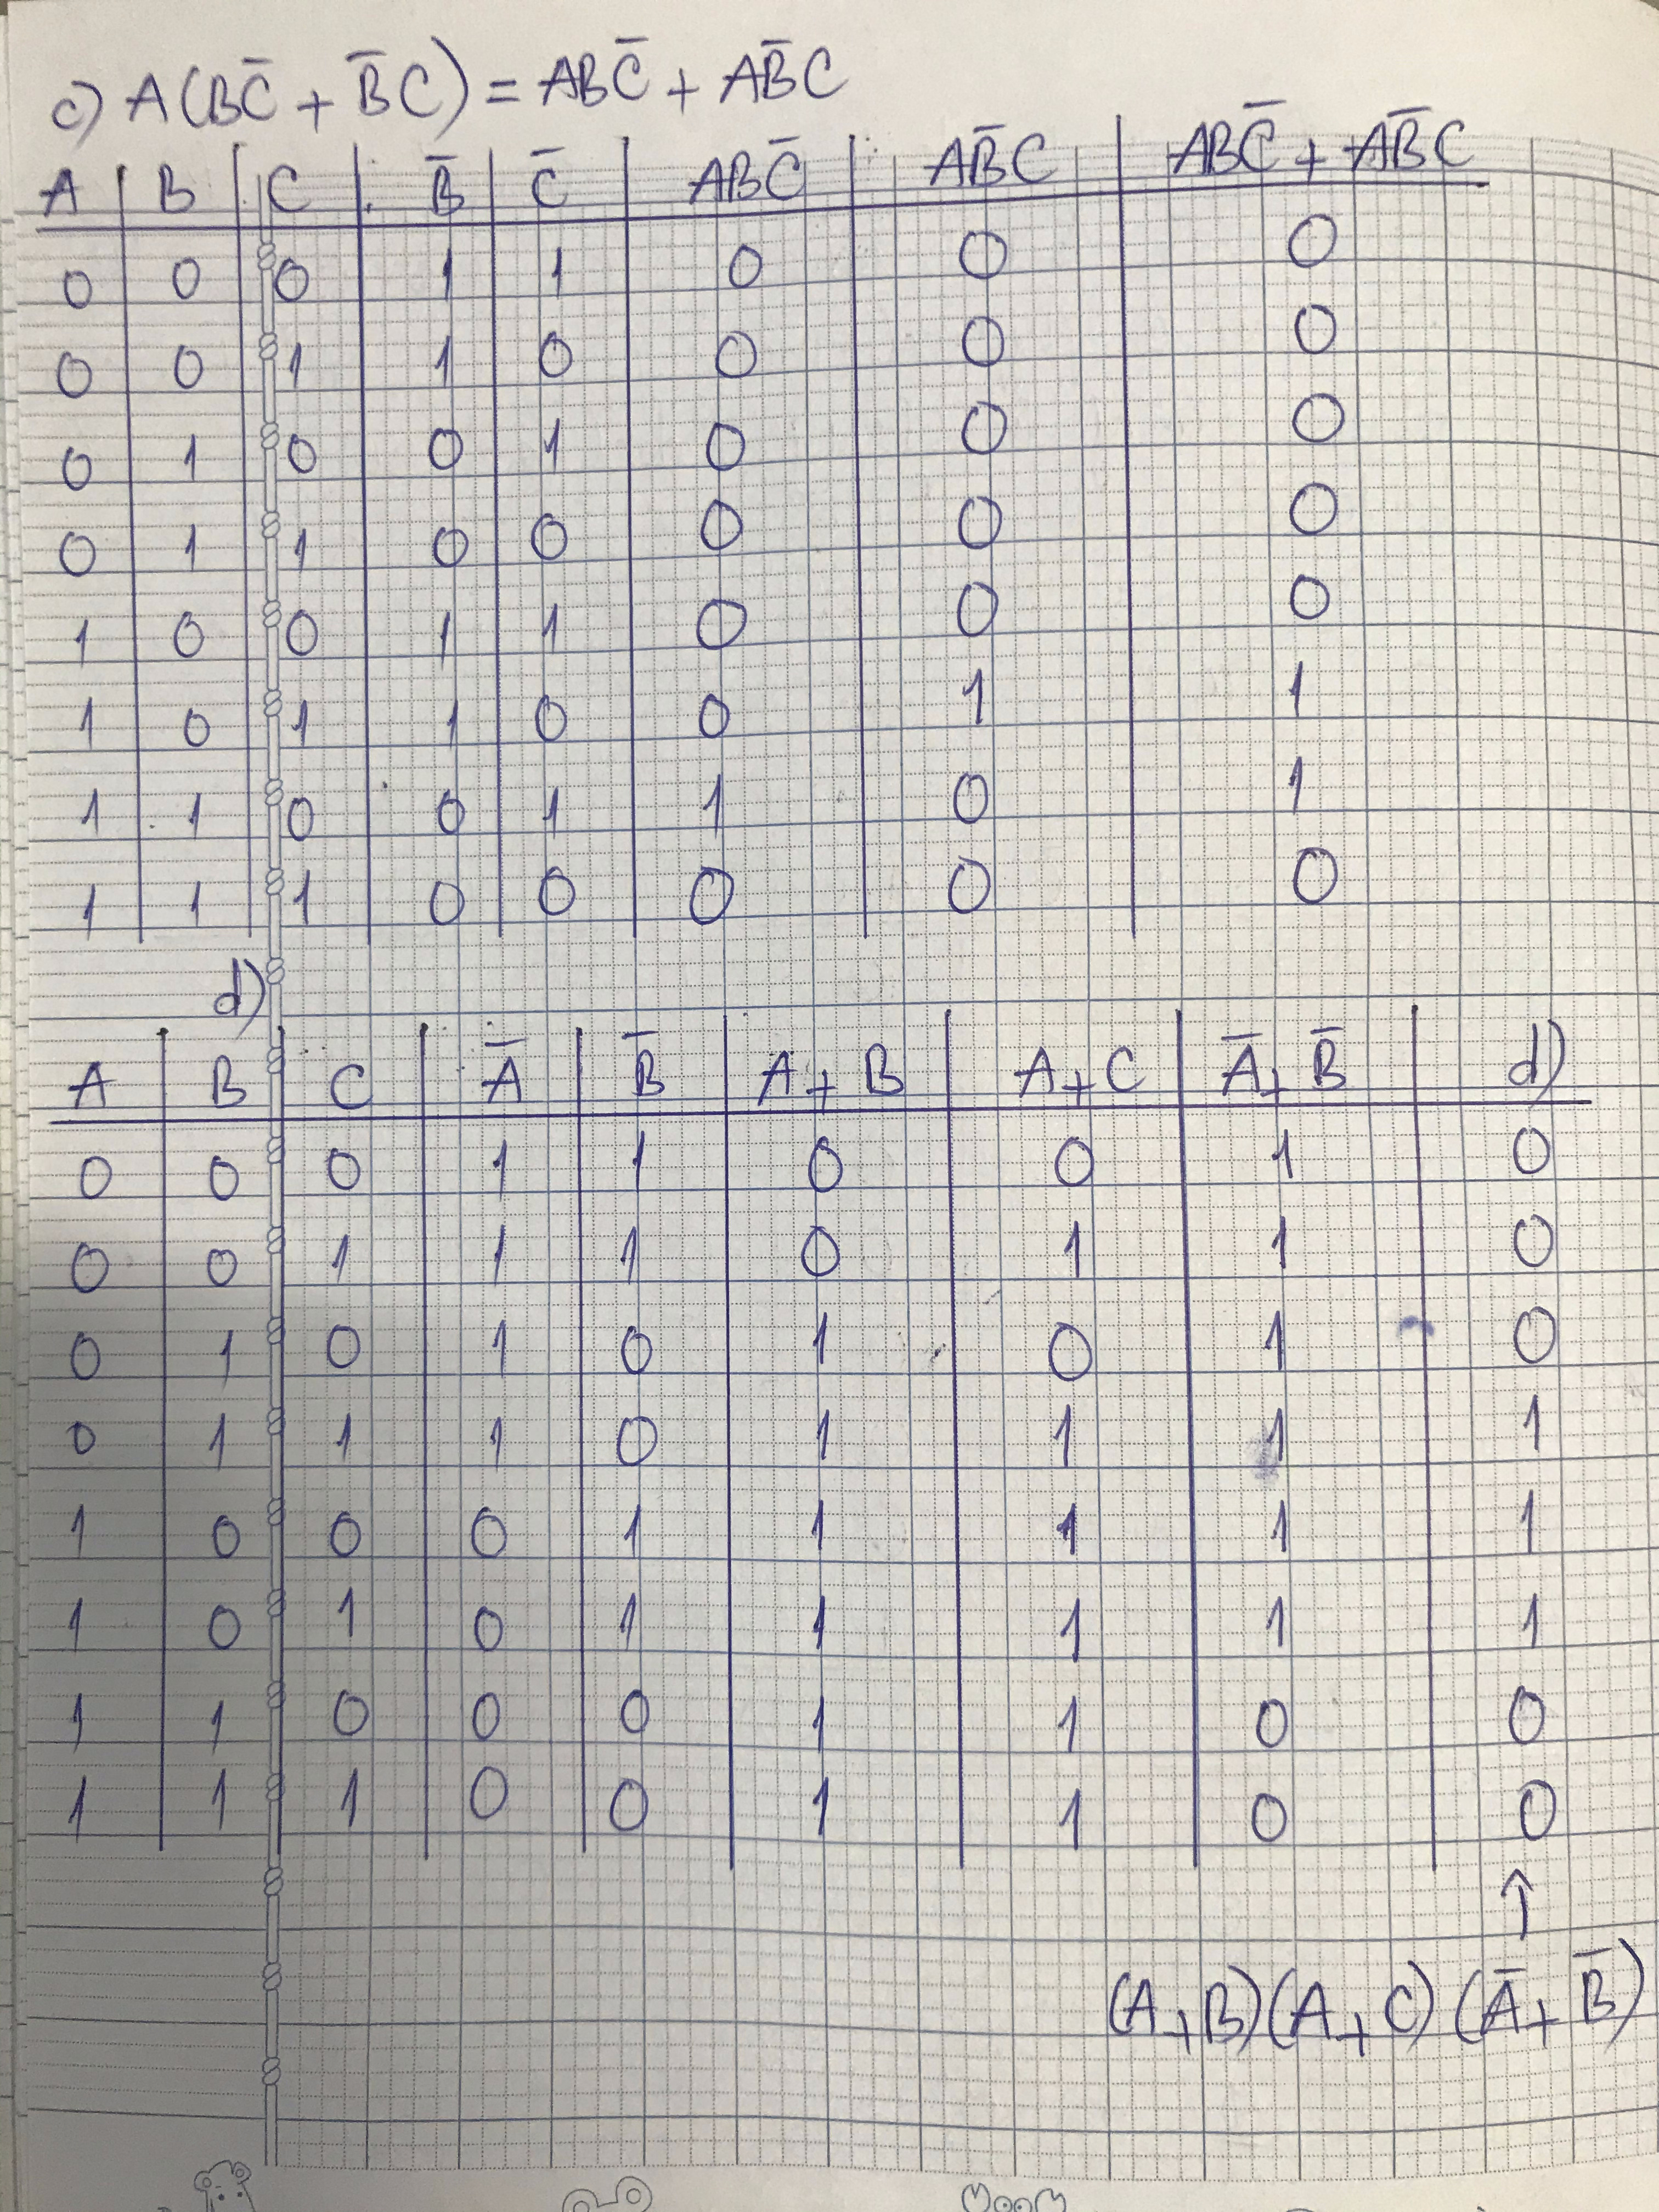 c) A(BC̅ + B̅C) = ABC̅ + AB̅C
A B C B̅ C̅ ABC̅ AB̅C ABC̅ + AB̅C
0 0 0 1 1 0 0 0
0 0 1 1 0 0 0 0
0 1 0 0 1 0 0 0
0 1 1 0 0 0 0 0
1 0 0 1 1 0 0 0
1 0 1 1 0 0 1 1
1 1 0 0 1 1 0 1
1 1 1 0 0 0 0 0
d)
A B C A̅ B̅ A + B A + C A̅ + B̅ d)
0 0 0 1 1 0 0 1 0
0 0 1 1 1 0 1 1 0
0 1 0 1 0 1 0 1 0
0 1 1 1 0 1 1 1 1
1 0 0 0 1 1 1 1 1
1 0 1 0 1 1 1 1 1
1 1 0 0 0 1 1 0 0
1 1 1 0 0 1 1 0 0
↑
(A + B)(A + C)(A̅ + B̅)
MooM